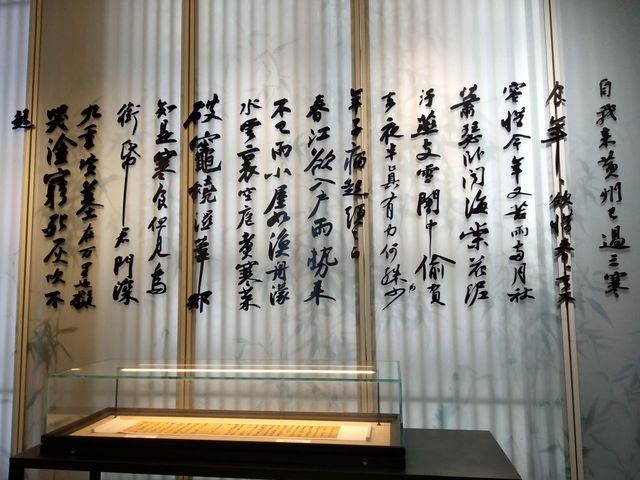 自我來黃州已過三寒
食年年欲惜春春去不
容惜今年又苦雨兩月秋
蕭瑟臥聞海棠花泥
汙燕支雪闇中偷負
去夜半真有力何殊少
年子病起頭已白
春江欲入戶雨勢來
不已雨小屋如漁舟濛
水雲裏空庖煮寒菜
破竈燒濕葦那
知是寒食但見烏
銜帋君門深
九重墳墓在萬里也擬
哭塗窮死灰吹不
起